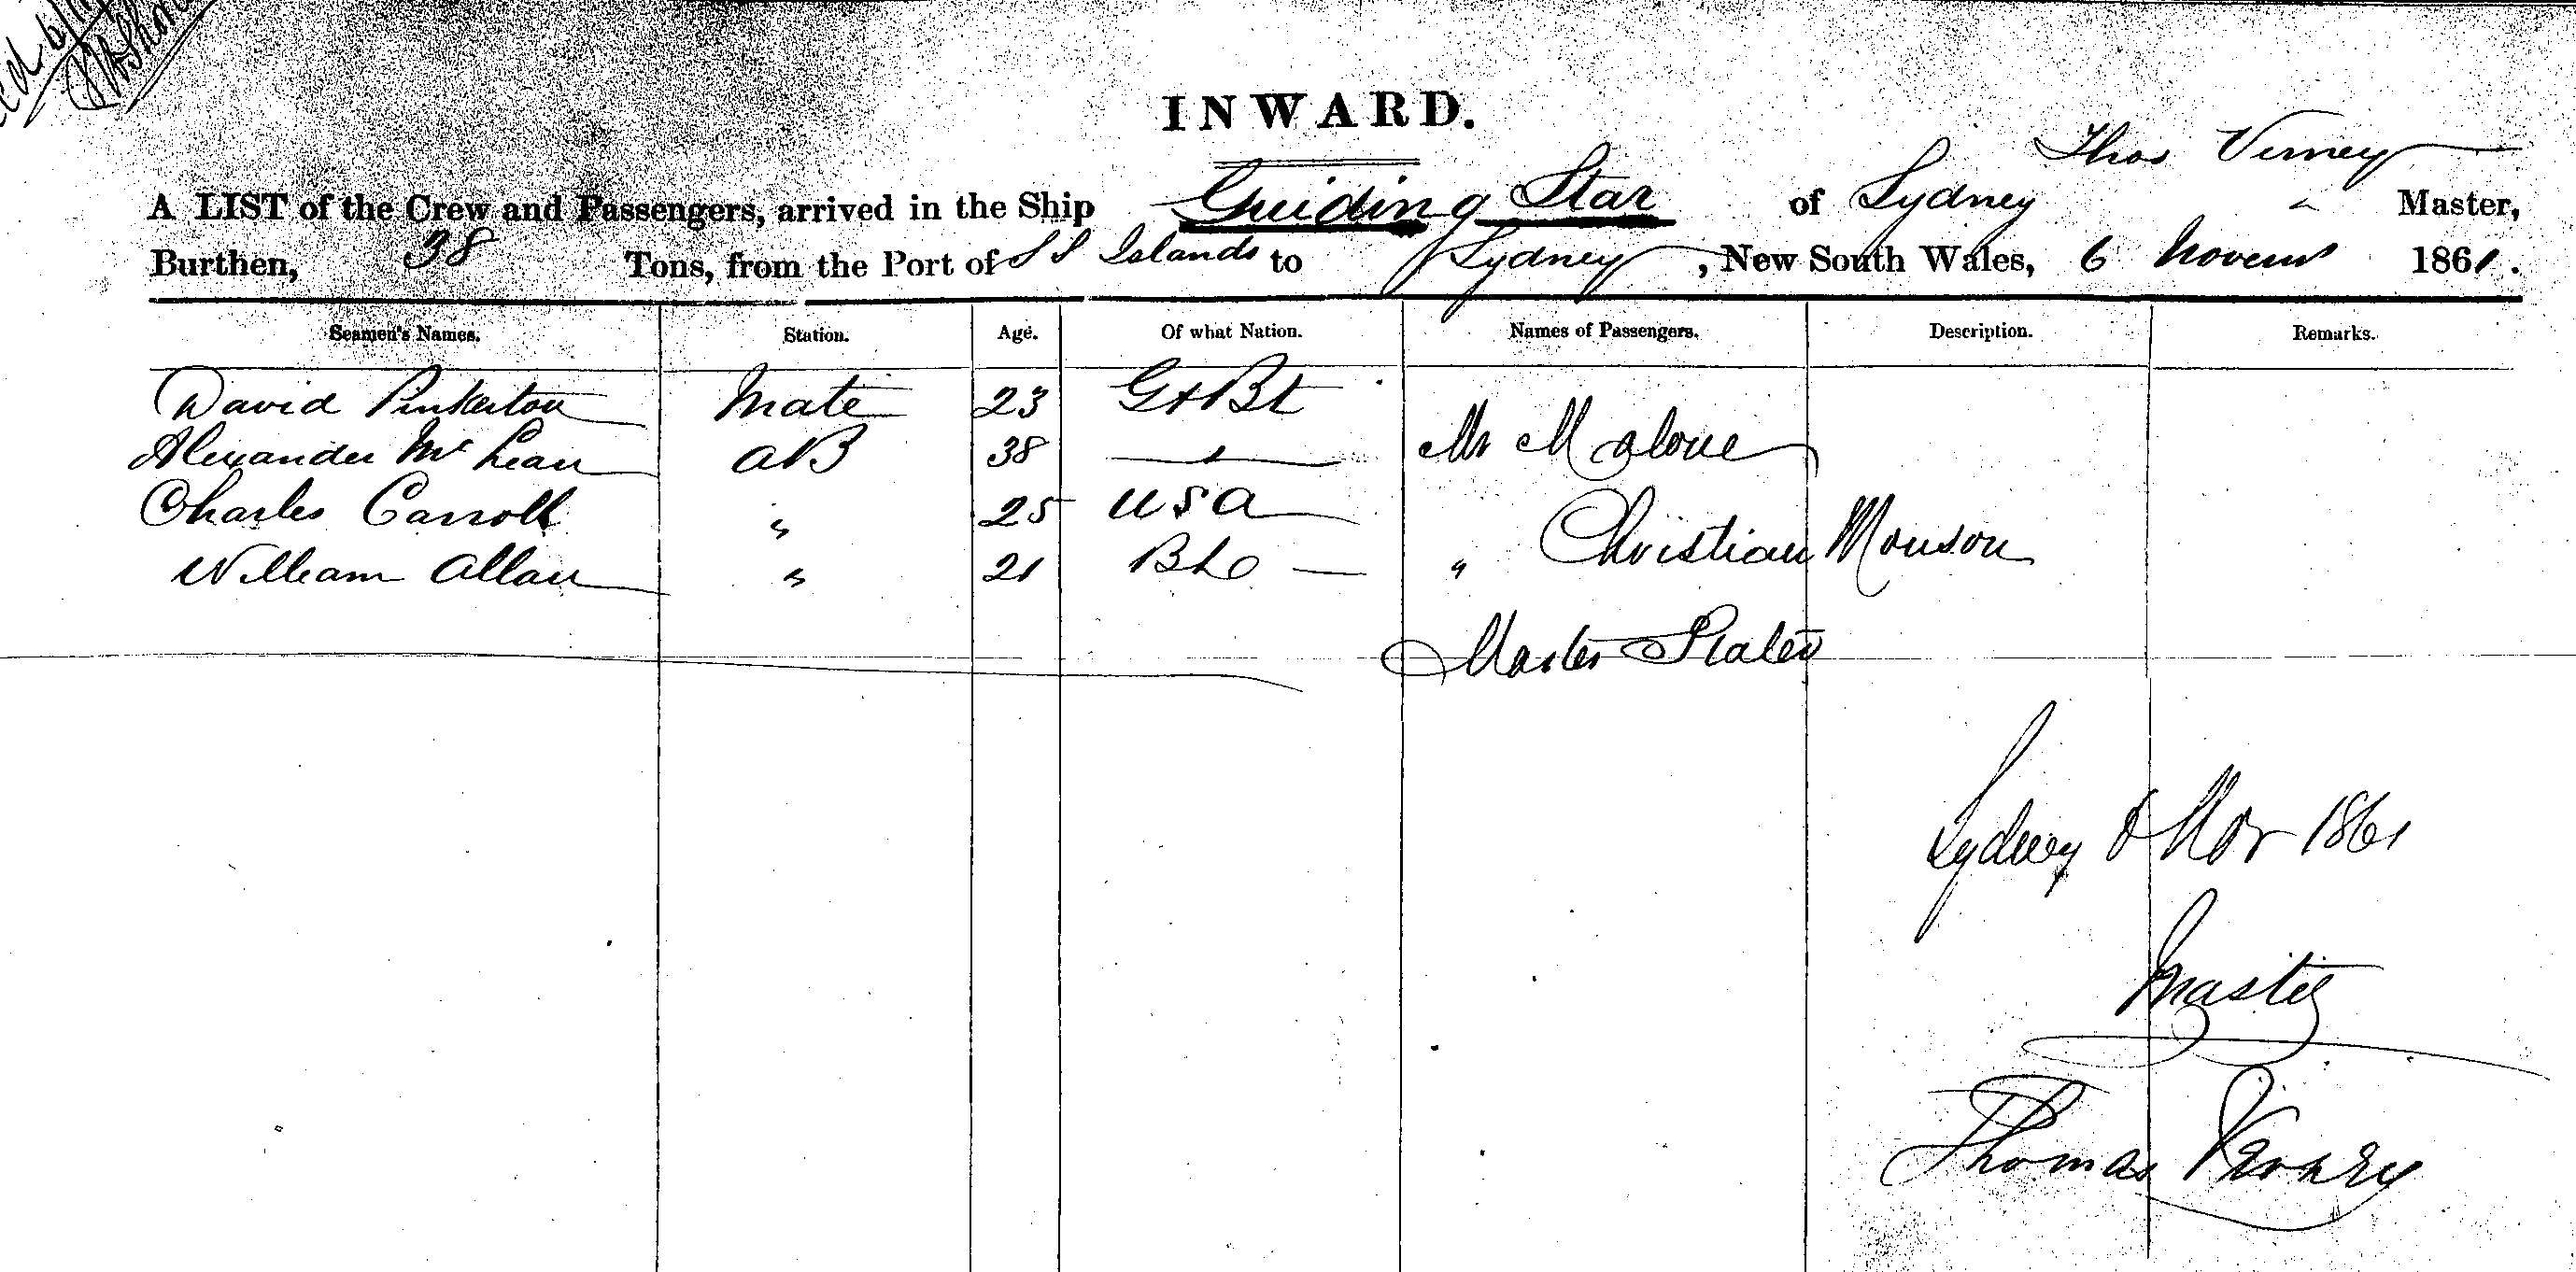 INWARD.
Thos Verney
A LIST of the Crew and Passengers, arrived in the Ship Guiding Star of Sydney Master,
Burthen, 38 Tons, from the Port of S S Islands to Sydney, New South Wales, 6 Novem 1861.
Seamen's Names. Station. Age. Of what Nation. Names of Passengers. Description. Remarks.
David Pinkerton Mate 23 Gt Bt
Alexander McLean AB 38 Mr Malone
Charles Carroll " 25 USA
William Allan " 21 " Christian Monson
Master Slater
Sydney 6 Nov 1861
Master
Thomas Verney